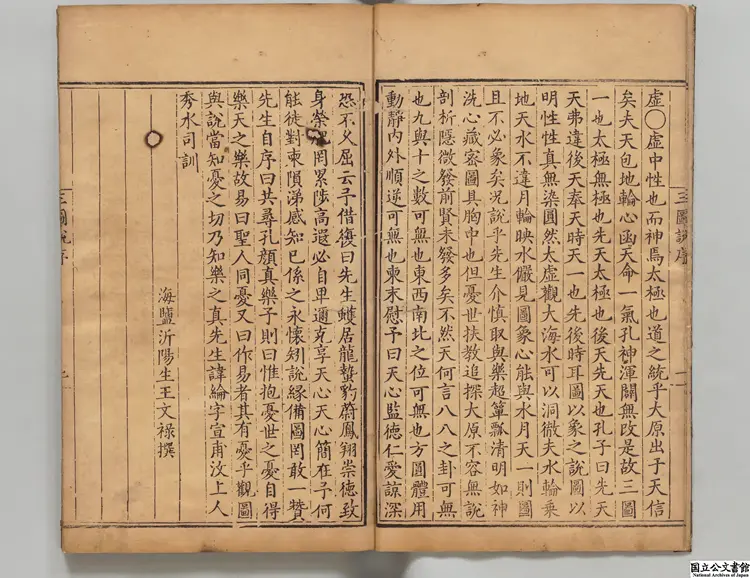 虛〇虛中性也而神焉太極也道之統乎大原出于天信
矣夫天包地輪心函天命一氣孔神渾闢無改是故三圖
一也太極無極也先天太極也後天先天也孔子曰先天
天弗違後天奉天時天一也先後時耳圖以象之說圖以
明性性真無染圓然太虛觀大海水可以洞微夫水輪乗
地天水不違月輪映水儼見圖象心能與水月天一則圖
且不必象矣況說乎先生介慎取與樂超簞瓢清明如神
洗心藏密圖具胸中也但憂世扶教追探大原不容無說
剖析隱微發前賢未發多矣不然天何言八八之卦可無
也九與十之數可無也東西南北之位可無也方圖體用
動靜内外順逆可無也柬末慰予曰天心監德仁愛諒深
恐不乆屈云予借復曰先生蠖居龍蟄豹蔚鳳翔崇德致
身榮罔累陟高遐必自卑邇克享天心天心簡在予何
能徒對柬隕涕感知已係之永懷矧說縁備圖罔敢一贊
先生自序曰共尋孔顔真樂予則曰惟抱憂世之憂自得
樂天之樂故易曰聖人同憂又曰作易者其有憂乎觀圖
與說當知憂之切乃知樂之真先生諱綸字宣甫汶上人
秀水司訓
海鹽沂陽生王文祿撰
三圖說序
三圖說序
国立公文書館
National Archives of Japan